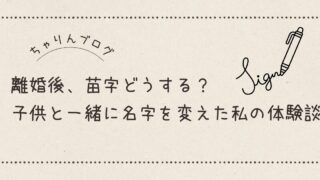 ちゃりんブログ
Sign
離婚後、苗字どうする？
子供と一緒に名字を変えた私の体験談